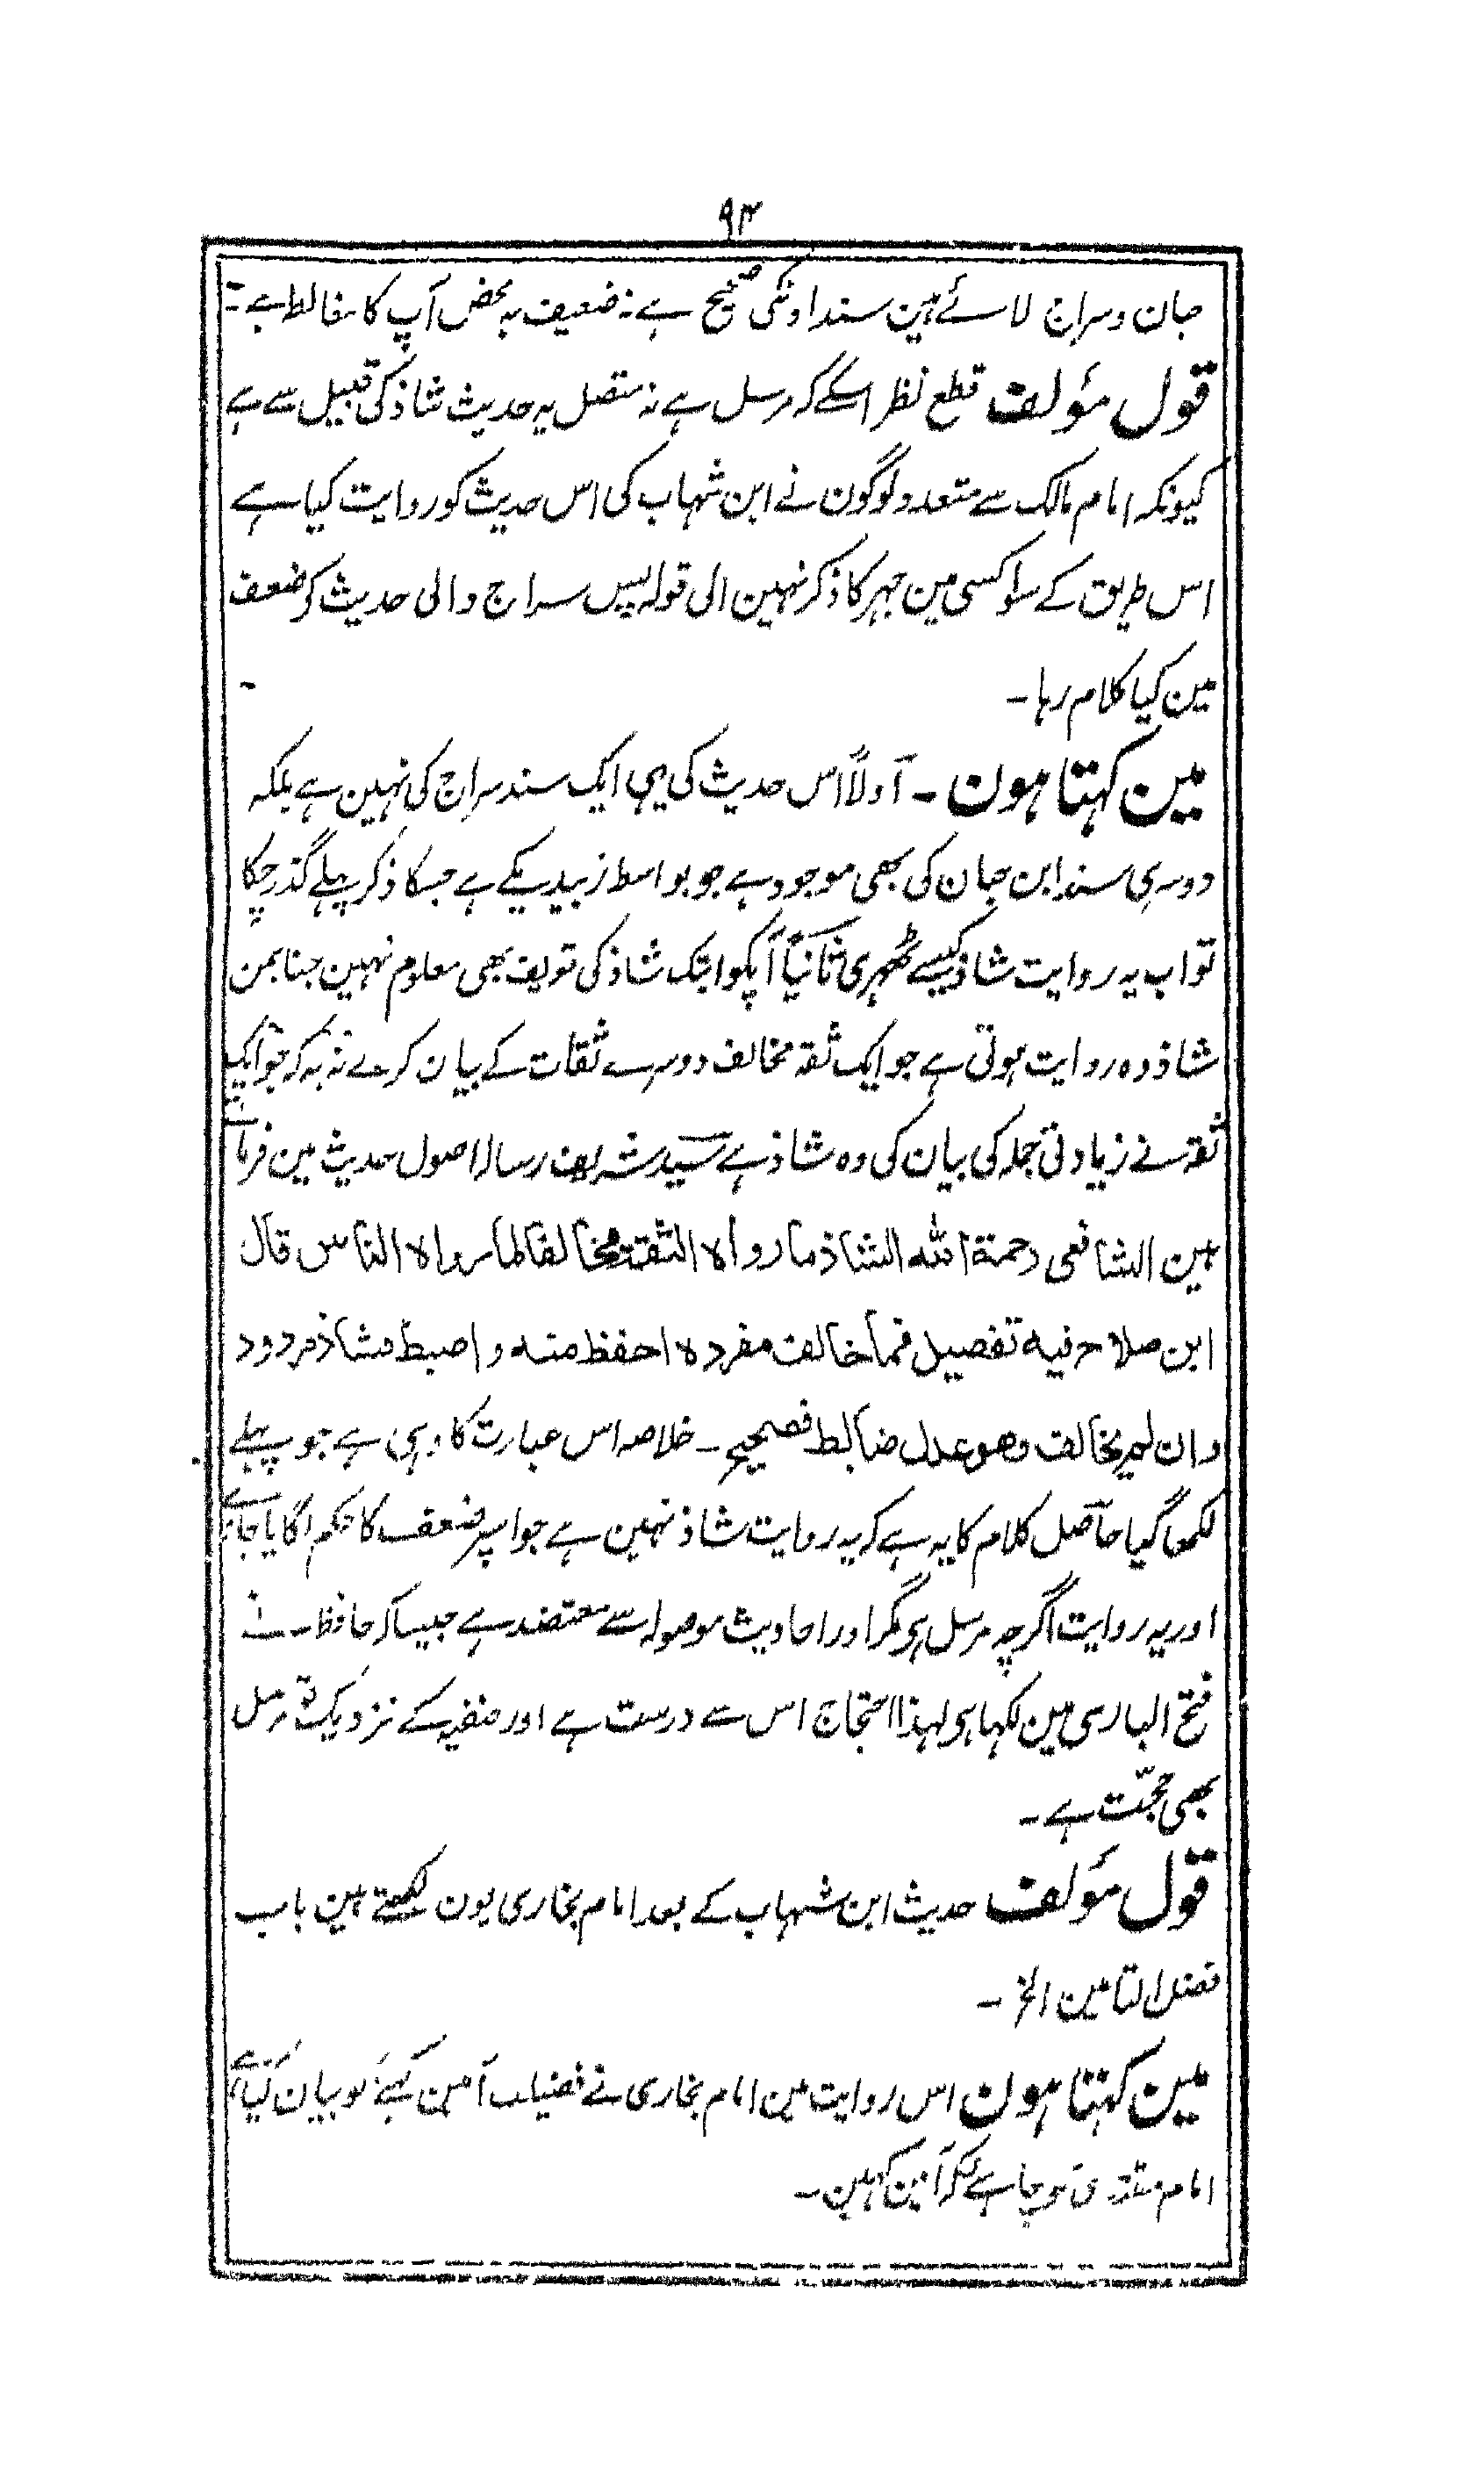 ۹۴
حبان و سراج لائے ہین سند اونکی صحیح ہے نہ ضعیف یہ محض آپ کا مغالطہ ہے۔
قول مؤلف قطع نظر اسکے کہ مرسل ہے نہ متصل یہ حدیث شاذ کی قبیل سے ہے
کیونکہ امام مالک سے متعدد لوگون نے ابن شہاب کی اس حدیث کو روایت کیا ہے
اس طریق کے سوا کسی مین جہر کا ذکر نہین الی قولہ پس سراج والی حدیث کو ضعف
مین کیا کلام رہا۔
مین کہتا ہون۔ اولاً اس حدیث کی یہی ایک سند سراج کی نہین ہے بلکہ
دوسری سند ابن حبان کی بھی موجود ہے جو بواسطہ زبیدیکے ہے جسکا ذکر پہلے گذر چکا
تو اب یہ روایت شاذ کیسے ٹھہری ثانیاً آپکو ابتک شاذ کی تعریف بھی معلوم نہین جنابمن
شاذ وہ روایت ہوتی ہے جو ایک ثقہ مخالف دوسرے ثقات کے بیان کرے نہ یہ کہ جو ایک
ثقہ نے زیادتی جملہ کی بیان کی وہ شاذ ہے سید شریف رسالہ اصول حدیث مین فرماتے
ہین الشافعی رحمة الله الشاذ ما رواه الثقة مخالفا لما رواه الناس قال
ابن صلاح فیه تفصیل فما خالف مفرده احفظ منه و اضبط فشاذ مردود
و ان لم یخالف وهو عدل ضابط فصحیح۔ خلاصہ اس عبارت کا وہی ہے جو پہلے
لکھا گیا حاصل کلام کا یہ ہے کہ یہ روایت شاذ نہین ہے جو اسپر ضعف کا حکم لگایا جاۓ
اور یہ روایت اگرچہ مرسل ہی مگر اور احادیث موصولہ سے معتضد ہے جیسا کہ حافظ نے
فتح الباری مین لکہا ہی لہذا احتجاج اس سے درست ہے اور حنفیہ کے نزدیک تو مرسل
بھی حجّت ہے۔
قول مؤلف حدیث ابن شہاب کے بعد امام بخاری یون لکھتے ہین باب
فضل التامین الخ۔
مین کہتا ہون اس روایت مین امام بخاری نے فضیلت آمین کہنے کو بیان کیا ہے
امام مقتدی کو چاہئے کہ آمین کہین۔